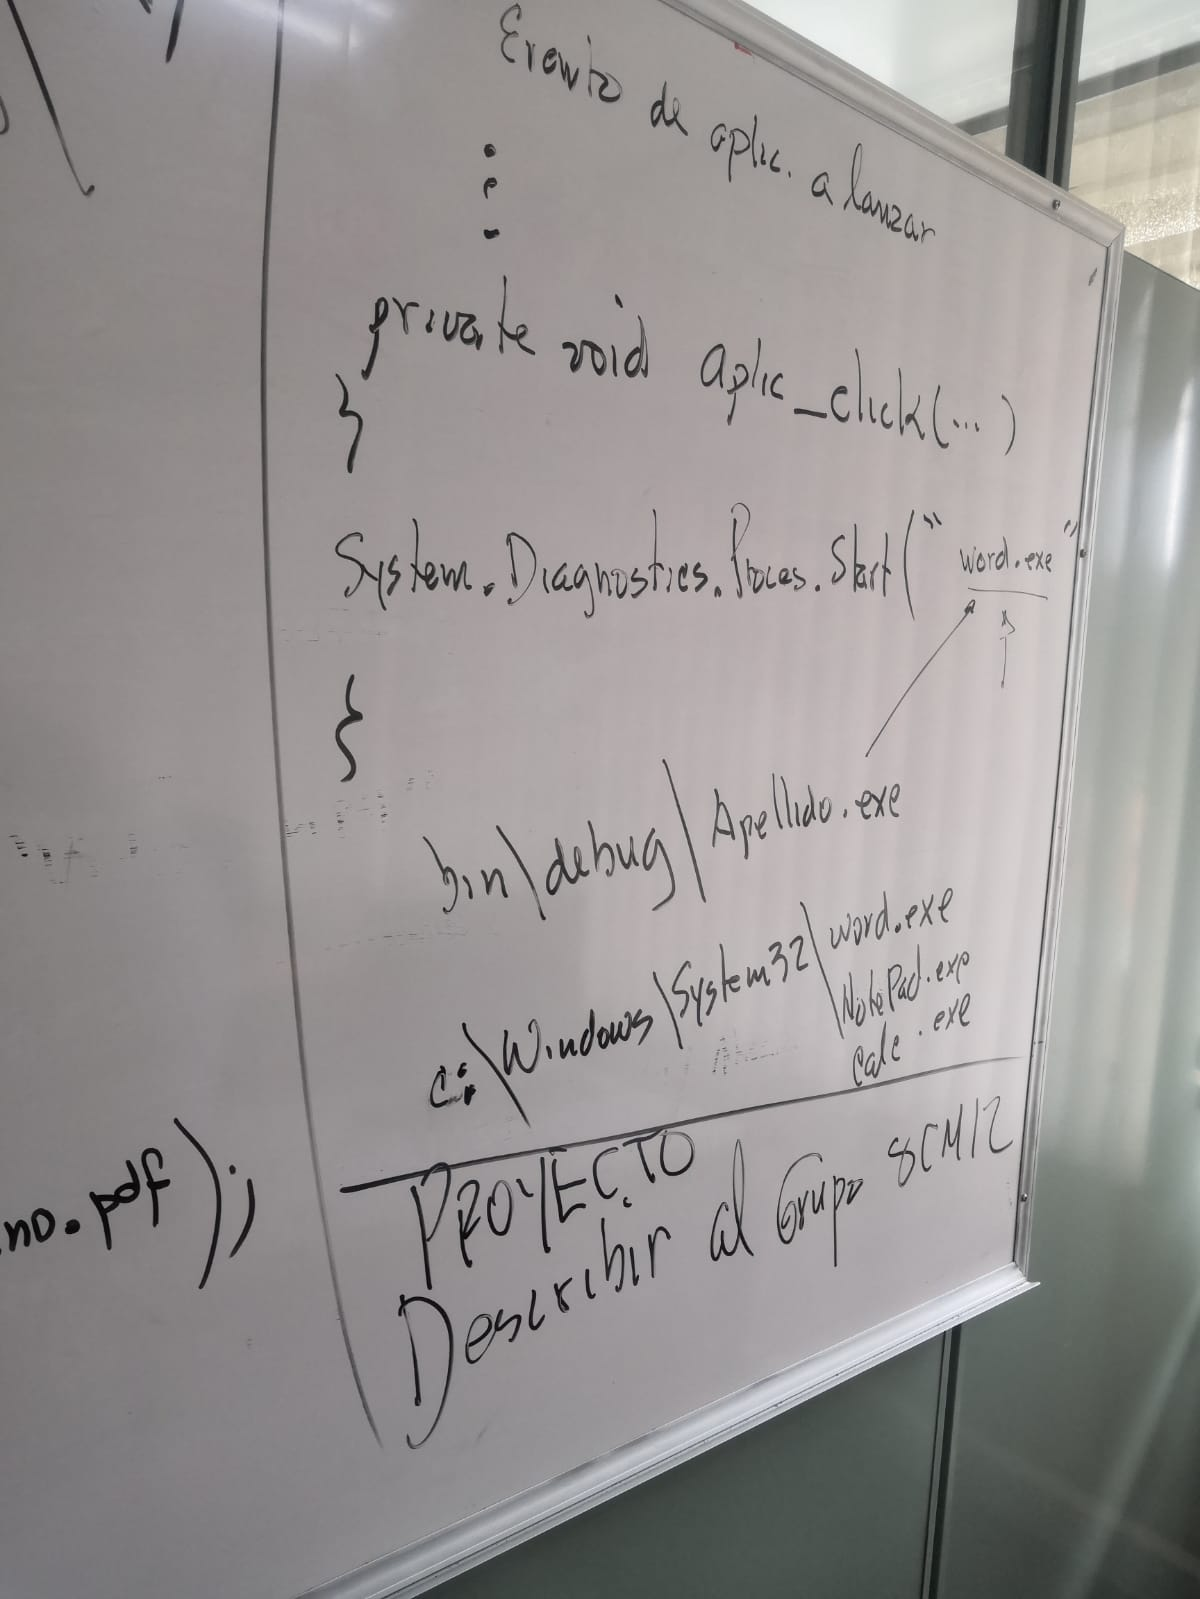 Evento de aplic. a lanzar
private void aplic_click(...)
}
System.Diagnostics.Proces.Start("word.exe"
}
bin\debug\Apellido.exe
c:\Windows\System32\word.exe
\NotePad.exe
calc.exe
no.pdf);
PROYECTO
Describir al Grupo 8CM12